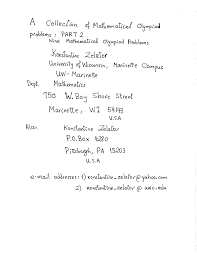 A Collection of Mathematical Olympiad
problems: PART 2
Nine Mathematical Olympiad Problems
Konstantine Zelator
University of Wisconsin, Marinette Campus
UW-Marinette
Dept. Mathematics
750 W. Bay Shore Street
Marinette, WI 54143
U.S.A
Also: Konstantine Zelator
P.O. Box 4280
Pittsburgh, PA 15203
U.S.A
e-mail addresses: 1) konstantine_zelator@yahoo.com
2) konstantine_zelator@uwc.edu